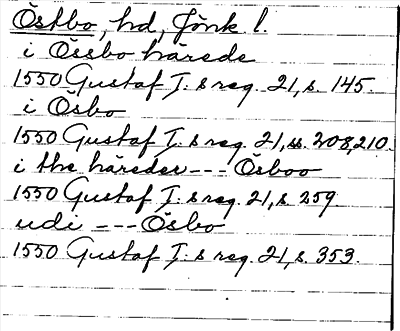 Östbo, hd, Jönk l.
i Össbo härede
1550 Gustaf I:s reg. 21, s. 145.
i Ösbo
1550 Gustaf I:s reg. 21, ss. 208, 210.
i the häreder --- Ösboo
1550 Gustaf I:s reg. 21, s. 259.
udi --- Ösbo
1550 Gustaf I:s reg. 21, s. 353.